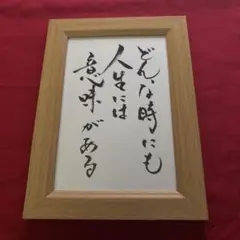 どんな時にも
人生には
意味がある